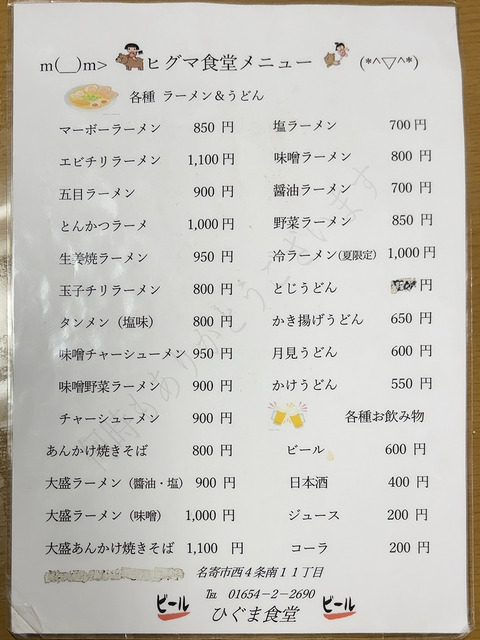 m(__)m> ヒグマ食堂メニュー (*^▽^*)
各種 ラーメン＆うどん
マーボーラーメン 850 円
エビチリラーメン 1,100 円
五目ラーメン 900 円
とんかつラーメ 1,000 円
生姜焼ラーメン 950 円
玉子チリラーメン 800 円
タンメン（塩味） 800 円
味噌チャーシューメン 950 円
味噌野菜ラーメン 900 円
チャーシューメン 900 円
あんかけ焼きそば 800 円
大盛ラーメン（醤油・塩） 900 円
大盛ラーメン（味噌） 1,000 円
大盛あんかけ焼きそば 1,100 円
塩ラーメン 700 円
味噌ラーメン 800 円
醤油ラーメン 700 円
野菜ラーメン 850 円
冷ラーメン(夏限定) 1,000 円
とじうどん 円
かき揚げうどん 650 円
月見うどん 600 円
かけうどん 550 円
各種お飲み物
ビール 600 円
日本酒 400 円
ジュース 200 円
コーラ 200 円
何時もありがとうございます
名寄市西４条南１１丁目
℡ 01654－2－2690
ビール ひぐま食堂 ビール